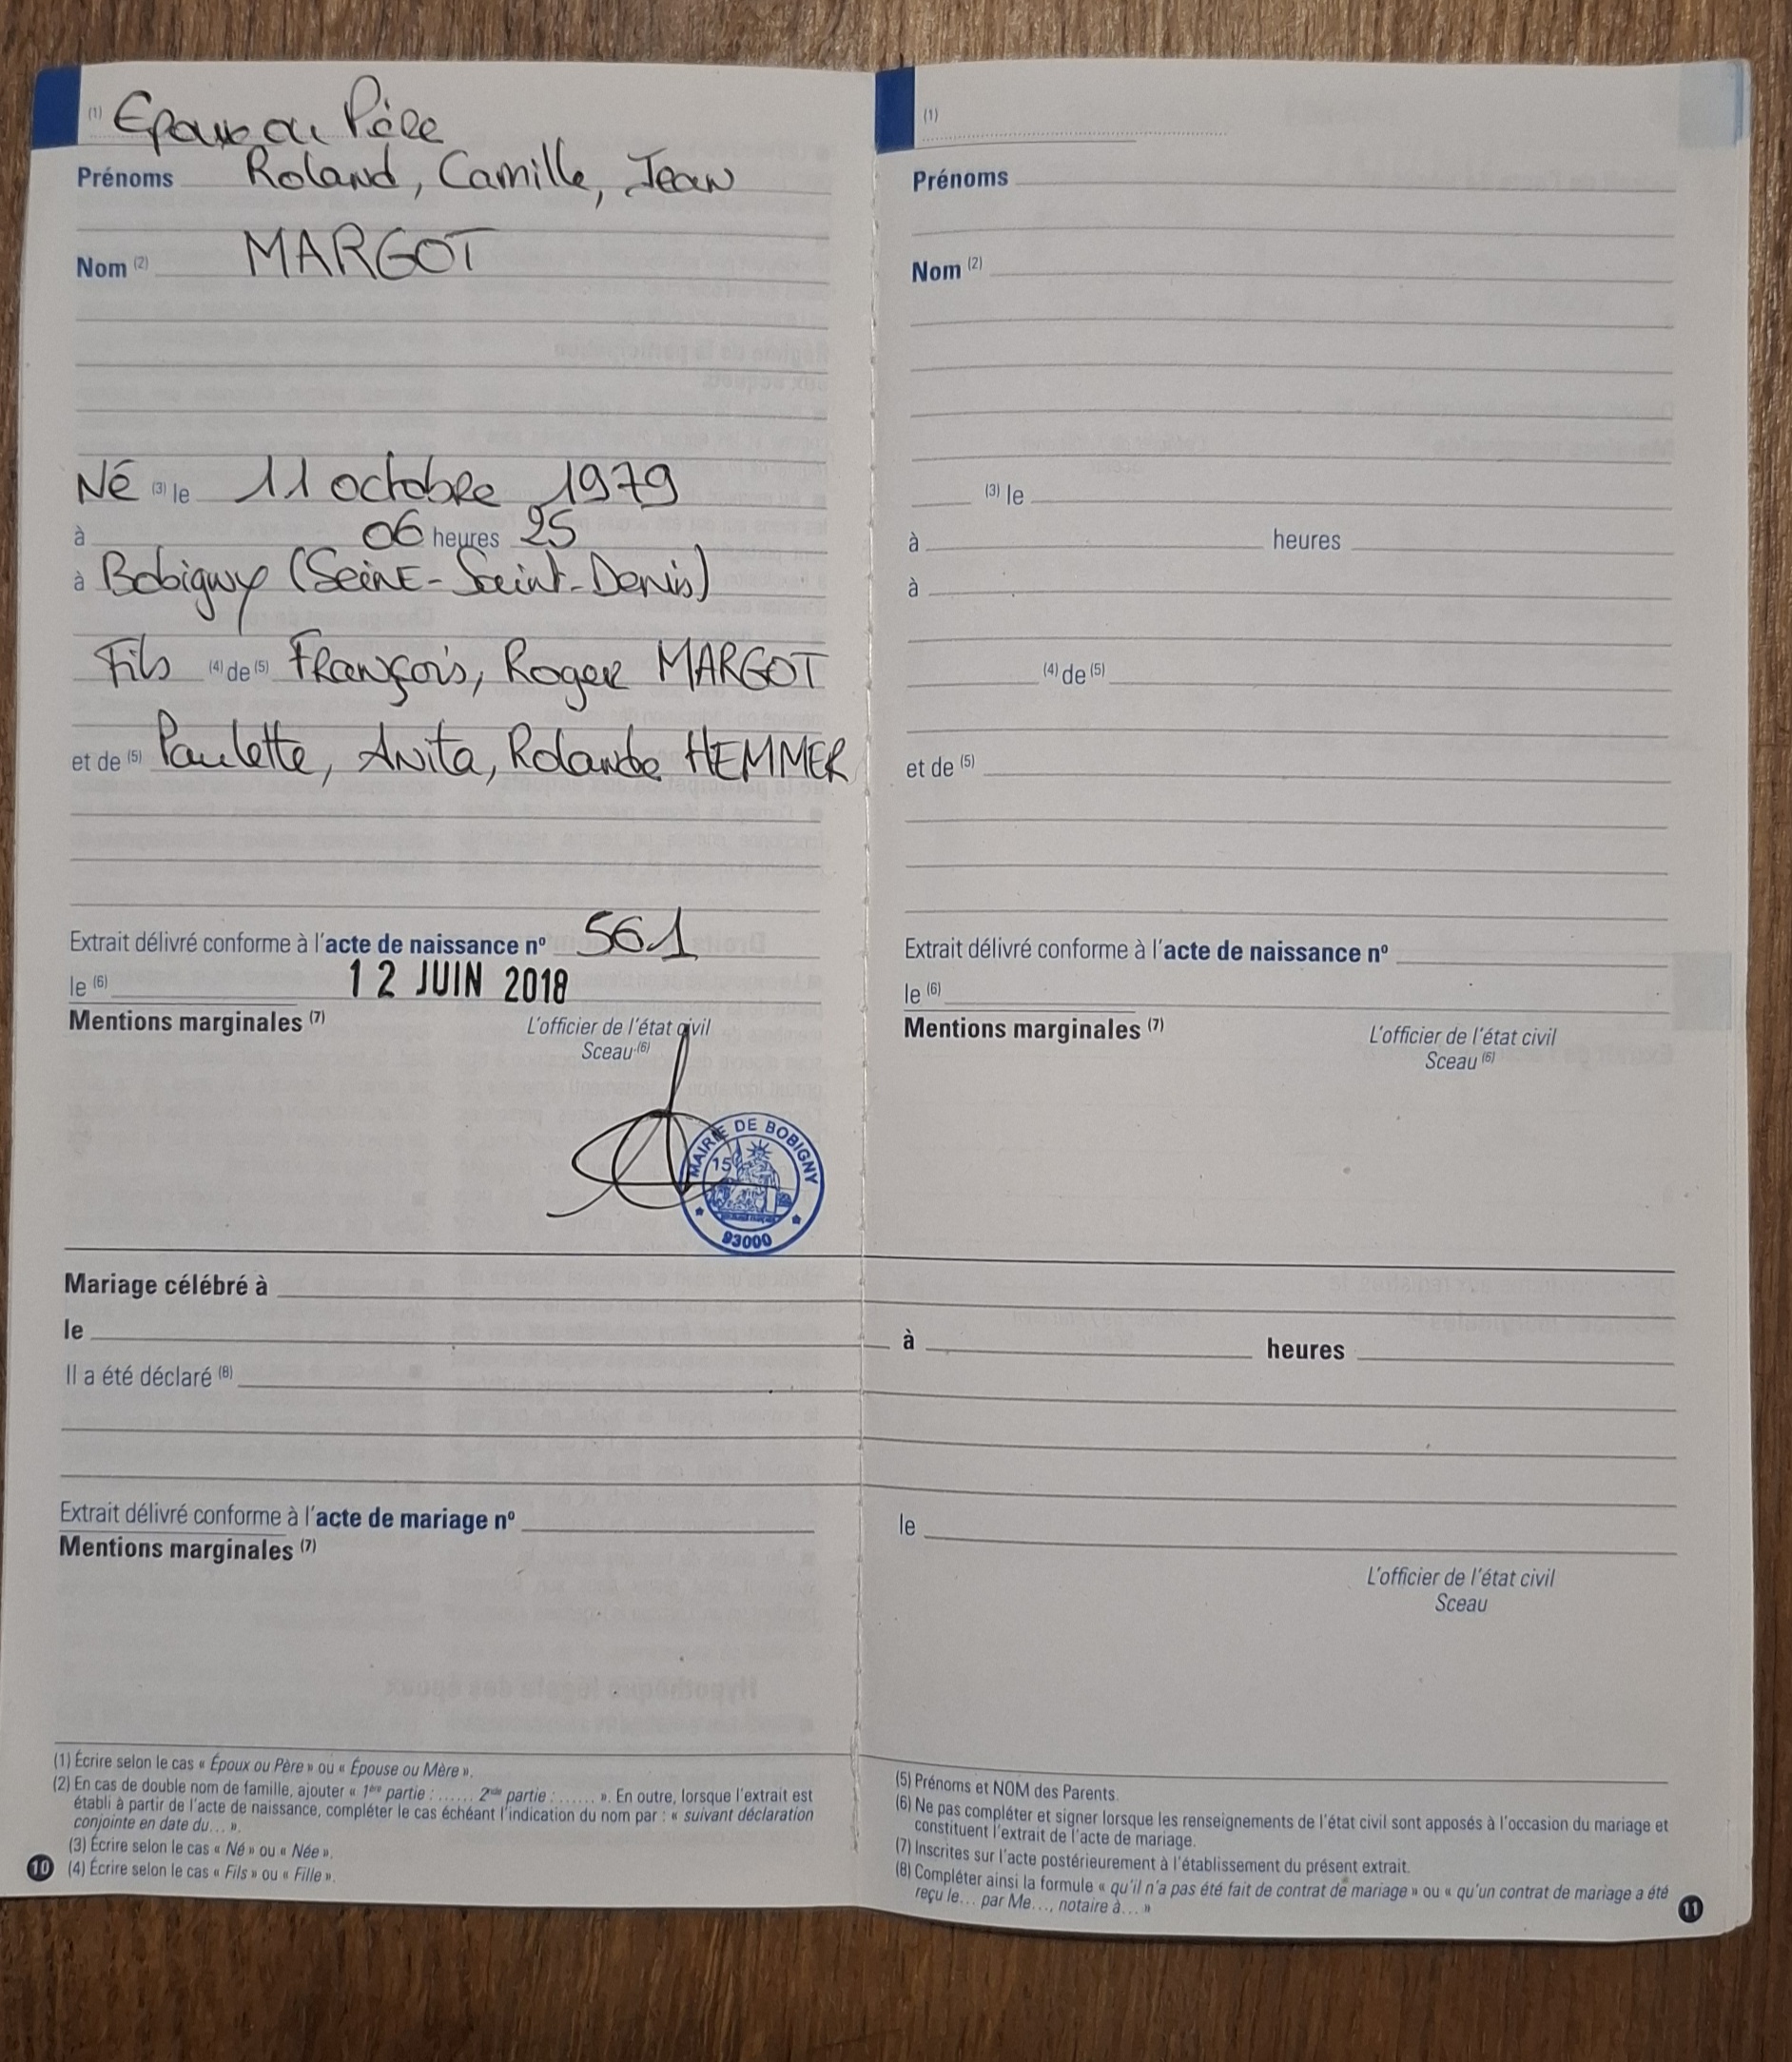 (1) Epoux ou Père
Prénoms Roland, Camille, Jean
Nom (2) MARGOT
Né (3) le 11 octobre 1979
à 06 heures 25
à Bobigny (Seine-Saint-Denis)
Fils (4) de (5) François, Roger MARGOT
et de (5) Paulette, Anita, Rolande HEMMER
Extrait délivré conforme à l'acte de naissance nº 561
le (6) 12 JUIN 2018
Mentions marginales (7)
L'officier de l'état civil
Sceau (6)
MAIRIE DE BOBIGNY
15
93000
(1)
Prénoms
Nom (2)
(3) le
à heures
à
(4) de (5)
et de (5)
Extrait délivré conforme à l'acte de naissance nº
le (6)
Mentions marginales (7)
L'officier de l'état civil
Sceau (6)
Mariage célébré à
le à heures
Il a été déclaré (8)
Extrait délivré conforme à l'acte de mariage nº
le
Mentions marginales (7)
L'officier de l'état civil
Sceau
(1) Écrire selon le cas « Époux ou Père » ou « Épouse ou Mère ».
(2) En cas de double nom de famille, ajouter « 1ère partie : ...... 2nde partie : ...... ». En outre, lorsque l'extrait est
établi à partir de l'acte de naissance, compléter le cas échéant l'indication du nom par : « suivant déclaration
conjointe en date du... ».
(3) Écrire selon le cas « Né » ou « Née ».
(4) Écrire selon le cas « Fils » ou « Fille ».
10
(5) Prénoms et NOM des Parents.
(6) Ne pas compléter et signer lorsque les renseignements de l'état civil sont apposés à l'occasion du mariage et
constituent l'extrait de l'acte de mariage.
(7) Inscrites sur l'acte postérieurement à l'établissement du présent extrait.
(8) Compléter ainsi la formule « qu'il n'a pas été fait de contrat de mariage » ou « qu'un contrat de mariage a été
reçu le... par Me..., notaire à... »
11